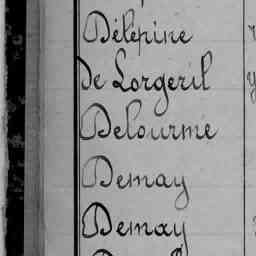 Délépine
de Lorgeril
Delourme
Demay
Demay